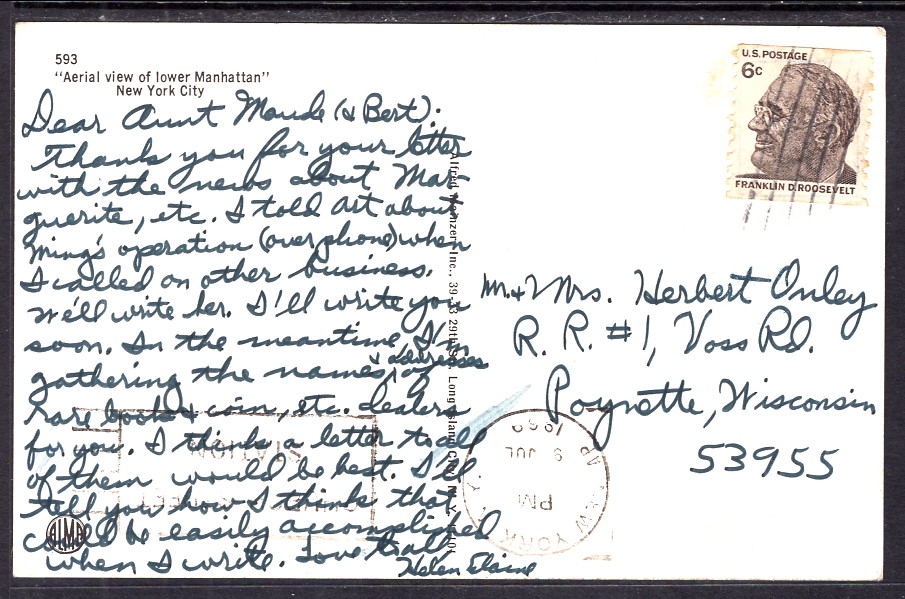 593
"Aerial view of lower Manhattan"
New York City
Dear Aunt Maude (& Bert):
Thank you for your letter
with the news about Mar-
guerite, etc. I told Art about
Ming's operation (over phone) when
I called on other business.
We'll write her. I'll write you
soon. In the meantime, I'm
gathering the names & addresses of
rare book & coin, etc. dealers
for you. I think a letter to all
of them would be best. I'll
tell you how I think that
could be easily accomplished
when I write. Love to all
Helen Elaine
ALMA
Alfred Mainzer, Inc., 39-33 29th St., Long Island City, N.Y. 11101
U.S. POSTAGE
6c
FRANKLIN D. ROOSEVELT
Mr. & Mrs. Herbert Onley
R. R. #1, Voss Rd.
Poynette, Wisconsin
53955
NEW YORK, N.Y.
PM
9 JUL
STATION